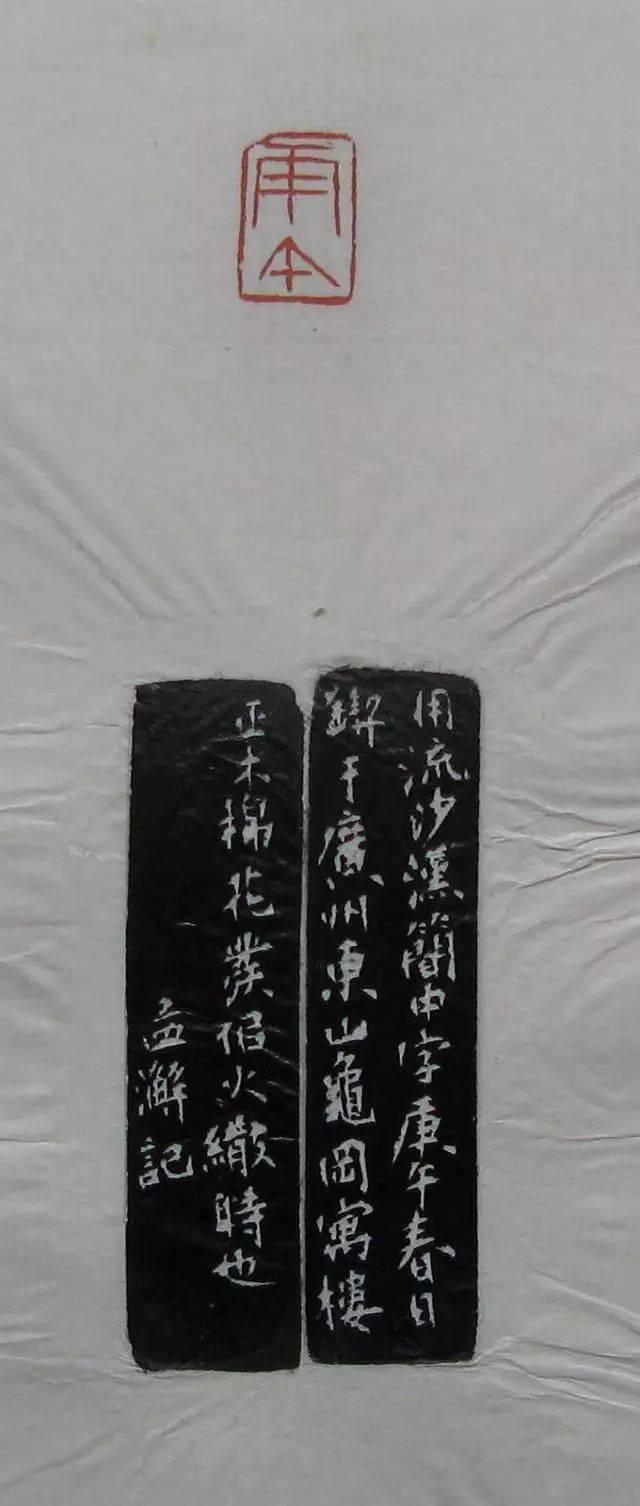 庚午
用流沙漢簡中字庚午春日
鍥于廣州東山龜岡寓樓
正木棉花佀火繖時也
孟澥記